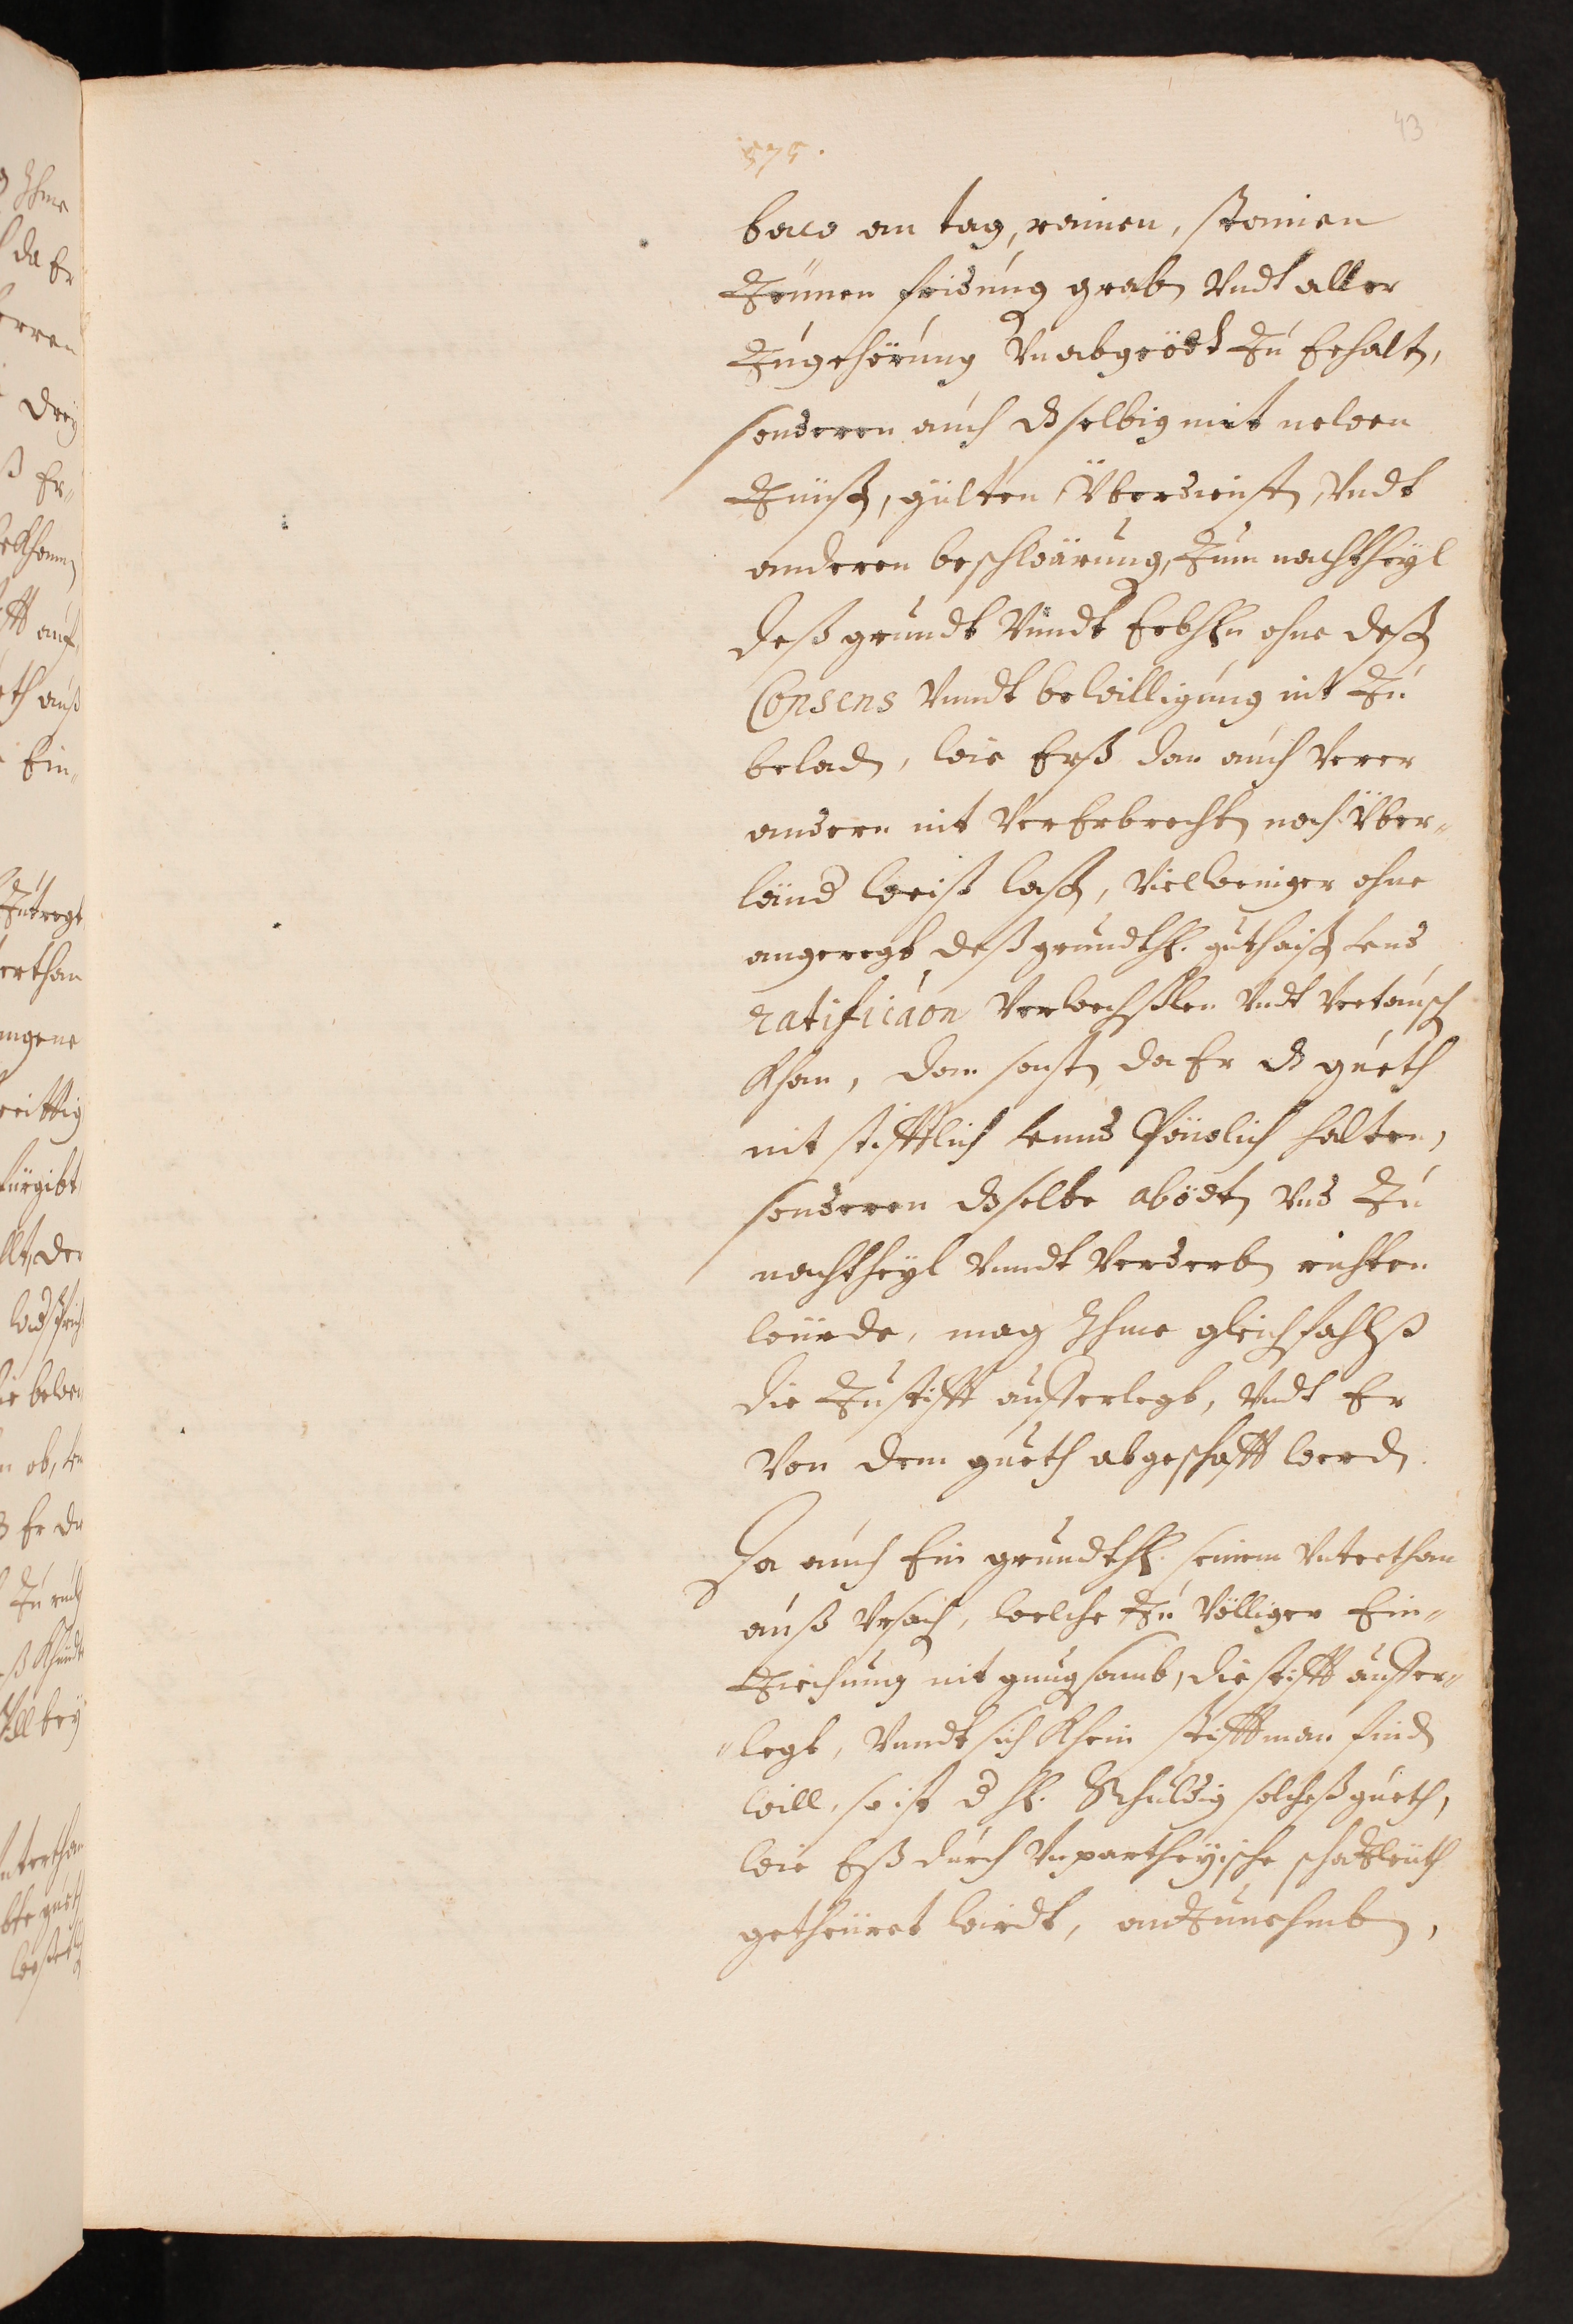 43
575.
baw an tag, rainen, stainen
Zeünen fridung grabn Vndt aller
Zugehörung Vnabgeödt Zu Erhaltn,
sonderen auch dselbig mit newen
Zünßn, gülten, Überdienstn, Vndt
anderen beschwärung, Zum nachtheyl
deß grundt Vnndt Erbhℓn ohne deßn
Consens Vnndt bewilligung nit Zu
beladn, wie Erß dan auch Verer
andern nit VerErbrechtn noch Über„
länd weiß laßn, Vielweniger ohne
angeregt deß grundthℓ. guthaißn Vnd
ratificaon Verwechßlen Vndt Vertauschn
Khan, dan sonstn da Er d gueth
nit stifftlich Vnnd Peülich halten,
sonderen dselbe abödtn Vnd Zu
nachtheyl Vnndt Verderbn richten
würde, mag Ihme gleichfahlß
die Zustifft aufferlegt, Vndt Er
Von dem gueth abgeschafft werdn.
Da auch Ein grundthℓ. seinem Vnterthan
auß Vrsach, welche Zu Völliger Ein„
Ziechung nit gnugsamb, die stifft auffer„
„legt, Vnndt sich Khein stifftman findn
will, so ist d hℓ. Schuldig solcheß gueth,
wie Eß durch Vnpartheyische schazleüth
getheüret wirdt, anZunehmben,